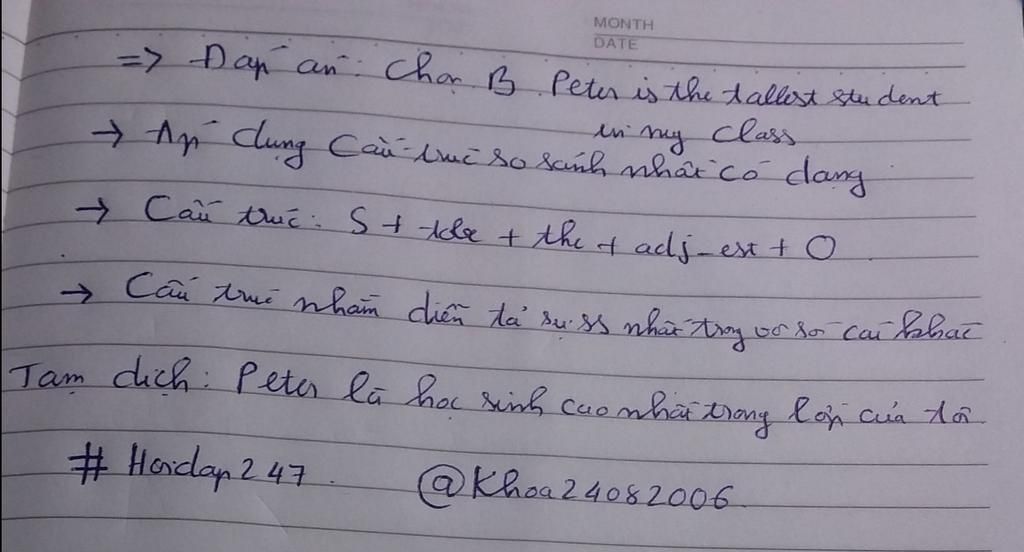 MONTH
DATE
=> Đáp án: Chọn B Peter is the tallest student
in my class
→ Áp dụng Cấu trúc so sánh nhất có dạng
→ Cấu trúc: S + tobe + the + adj-est + O
→ Cấu trúc nhằm diễn tả sự ss nhất trong vô số cái khác
Tạm dịch: Peter là học sinh cao nhất trong lớp của tôi
# Hoidap247. @Khoa24082006